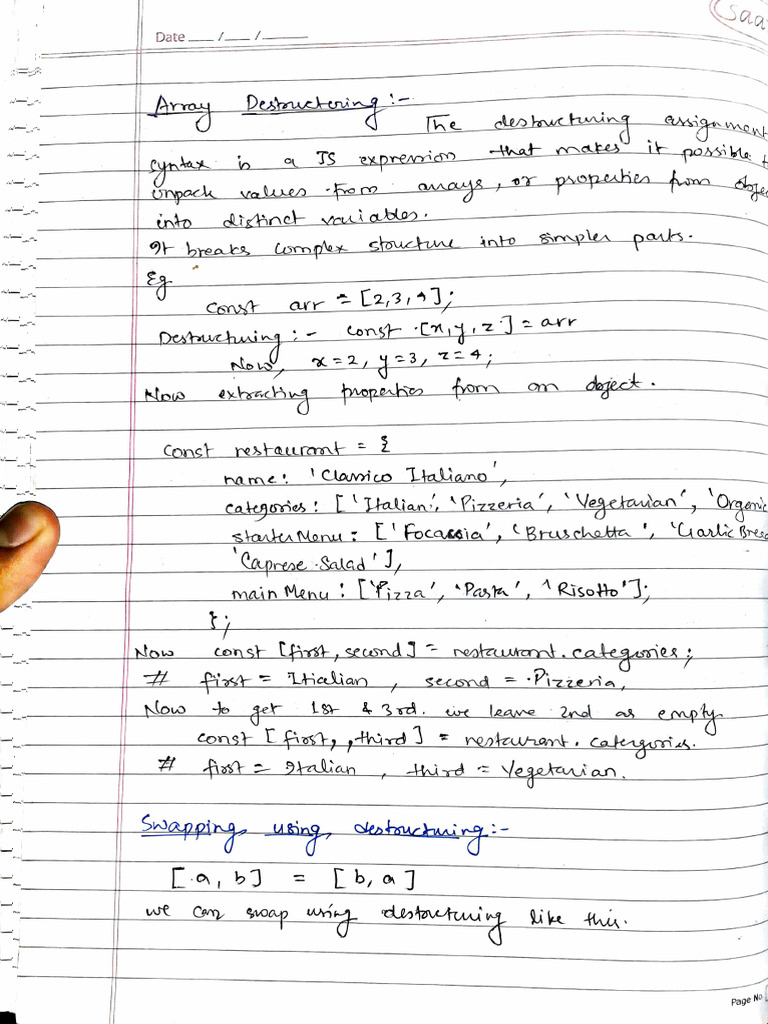 Saa
Date __ / __ / ____
Array Destructering :-
The destructuring assignment
syntax is a JS expression that makes it possible t
unpack values from arrays, or properties from obje
into distinct variables.
It breaks complex structure into simpler parts.
Eg
const arr = [2,3,4];
Destructuring :- const [x,y,z] = arr
Now, x=2, y=3, z=4;
Now extracting properties from an object.
const restaurant = {
name: 'Classico Italiano',
categories: ['Italian', 'Pizzeria', 'Vegetarian', 'Organic
starterMenu: ['Focassia', 'Bruschetta', 'Garlic Brea
'Caprese Salad'],
main Menu: ['Pizza', 'Pasta', 'Risotto'];
};
Now const [first, second] = restaurant.categories;
# first = Itialian, second = Pizzeria,
Now to get 1st & 3rd. we leave 2nd as empty
const [first, ,third] = restaurant.catergories.
# first = Italian, third = Vegetarian.
Swapping using destructuring :-
[a, b] = [b, a]
we can swap using destructuring like this.
Page No